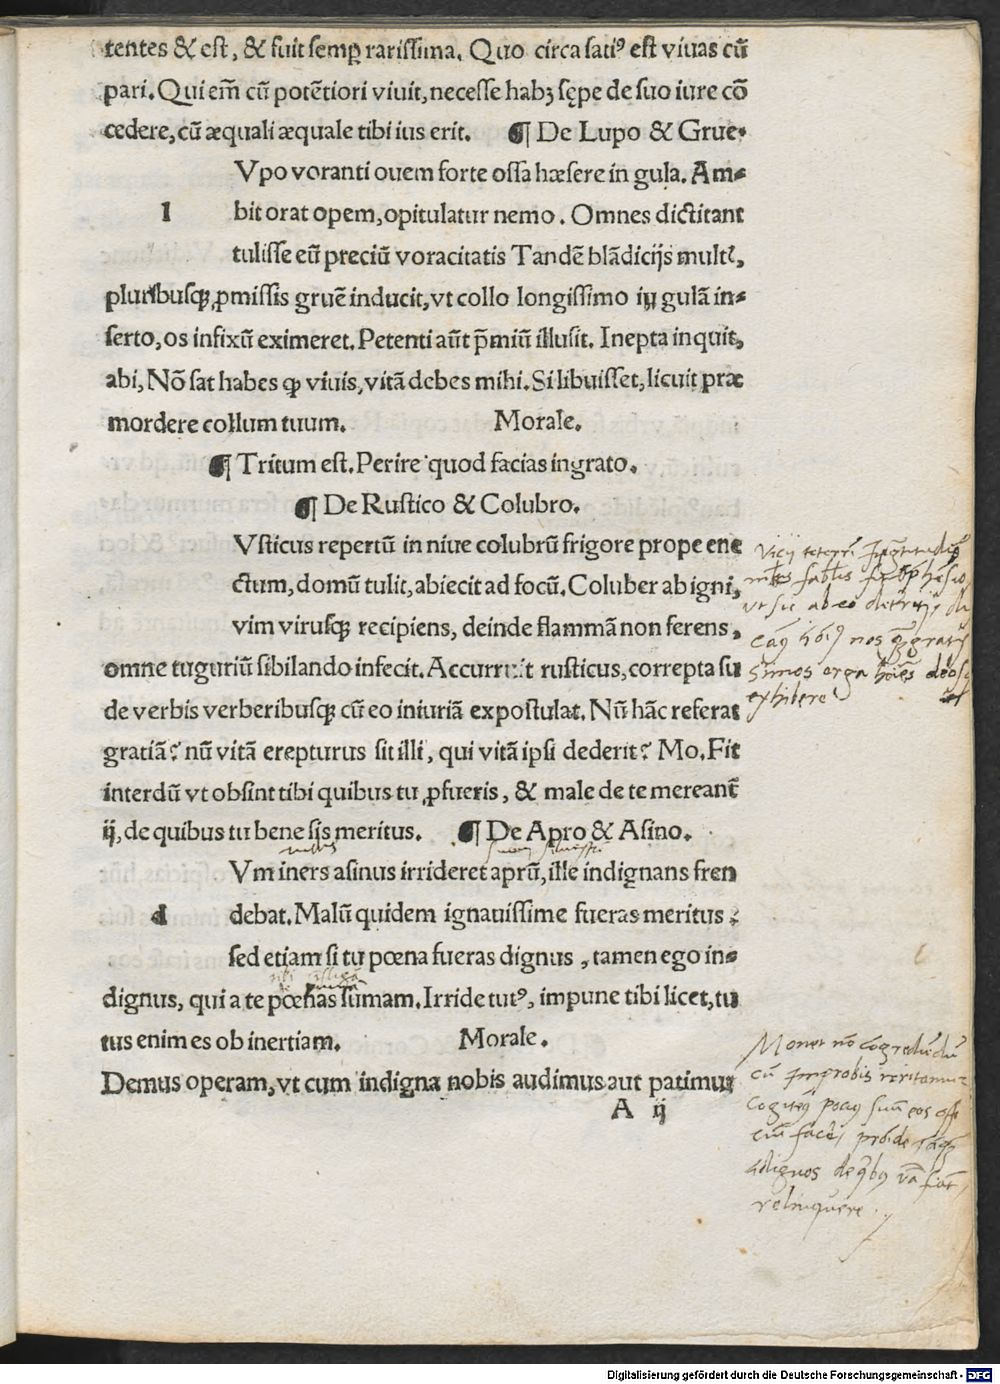 tentes & est, & fuit semꝑ rarissima. Quo circa satiꝰ est viuas cũ
pari. Qui em̃ cũ potẽtiori viuit, necesse habꝫ sępe de suo iure cõ
cedere, cũ æquali æquale tibi ius erit. ¶ De Lupo & Grue.
Vpo voranti ouem forte ossa hæsere in gula. Am⸗
l bit orat opem, opitulatur nemo. Omnes dictitant
tulisse eũ preciũ voracitatis Tandẽ blãdicijs
pluribusqꝫ ꝓmissis gruẽ inducit, vt collo longissimo in gulã in⸗
serto, os infixũ eximeret. Petenti aũt p̃miũ illusit. Inepta inquit,
abi, Nõ sat habes ꝙ viuis, vitã debes mihi. Si libuisset, licuit præ
mordere collum tuum. Morale.
¶ Tritum est. Perire quod facias ingrato.
¶ De Rustico & Colubro.
Vsticus repertũ in niue colubrũ frigore prope ene
ctum, domũ tulit, abiecit ad focũ. Coluber ab igni,
vim virusqꝫ recipiens, deinde flammã non ferens,
omne tuguriũ sibilando infecit. Accurrit rusticus, correpta su
de verbis verberibusqꝫ cũ eo iniuriã expostulat. Nũ hãc referat
gratiã? nũ vitã erepturus sit illi, qui vitã ipsi dederit? Mo. Fit
interdũ vt obsint tibi quibus tu ꝓfueris, & male de te mereant̃
ij, de quibus tu bene sis meritus. ¶ De Apro & Asino.
Vm iners asinus irrideret aprũ, ille indignans fren
d debat. Malũ quidem ignauissime fueras meritus:
sed etiam si tu pœna fueras dignus, tamen ego in⸗
dignus, qui a te pœnas sumam. Irride tutꝰ, impune tibi licet, tu
tus enim es ob inertiam. Morale.
Demus operam, vt cum indigna nobis audimus aut patimur
A ij
vt sic ab eo
erga
exhibere
Monet nõ
cũ improbis
relinquere
Digitalisierung gefördert durch die Deutsche Forschungsgemeinschaft - DFG